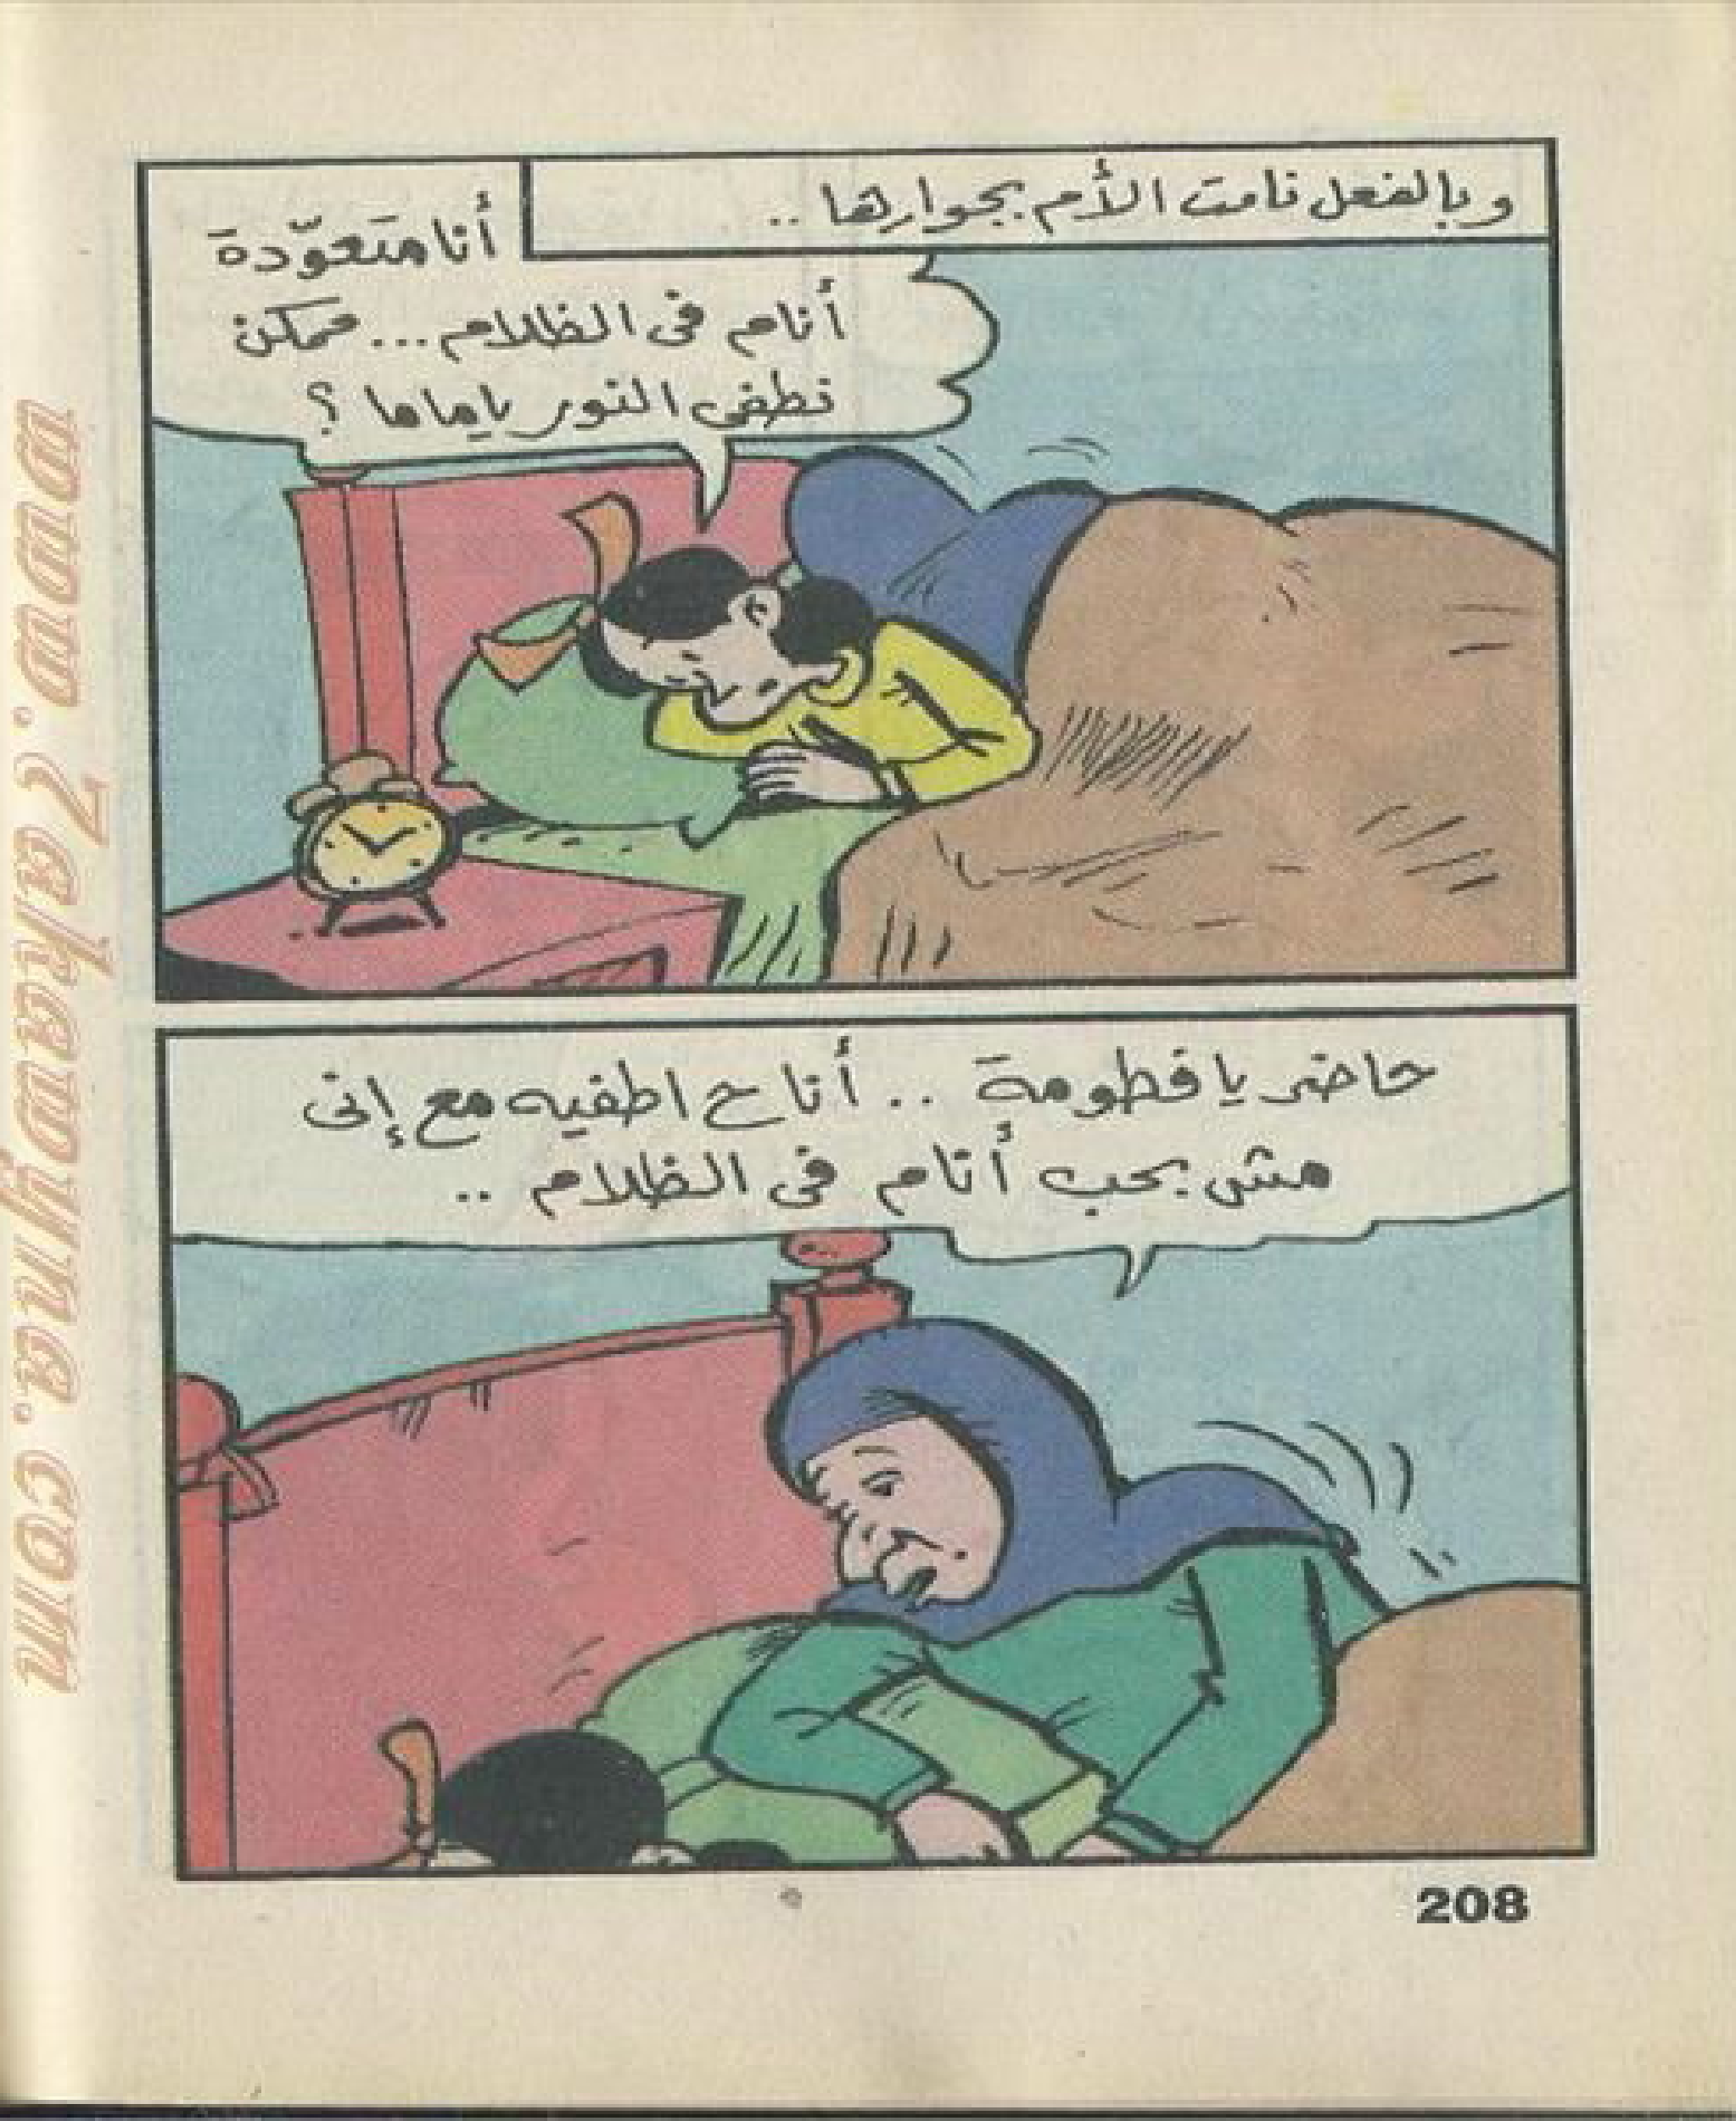 وبالفعل نامت الأم بجوارها ..
أنا متعوّدة
أنام فى الظلام ... ممكن
نطفى النور ياماما ؟
حاضر يا فطومة .. أنا ح اطفيه مع إنى
مش بحب أنام فى الظلام ..
208
www.zakaayuna.com